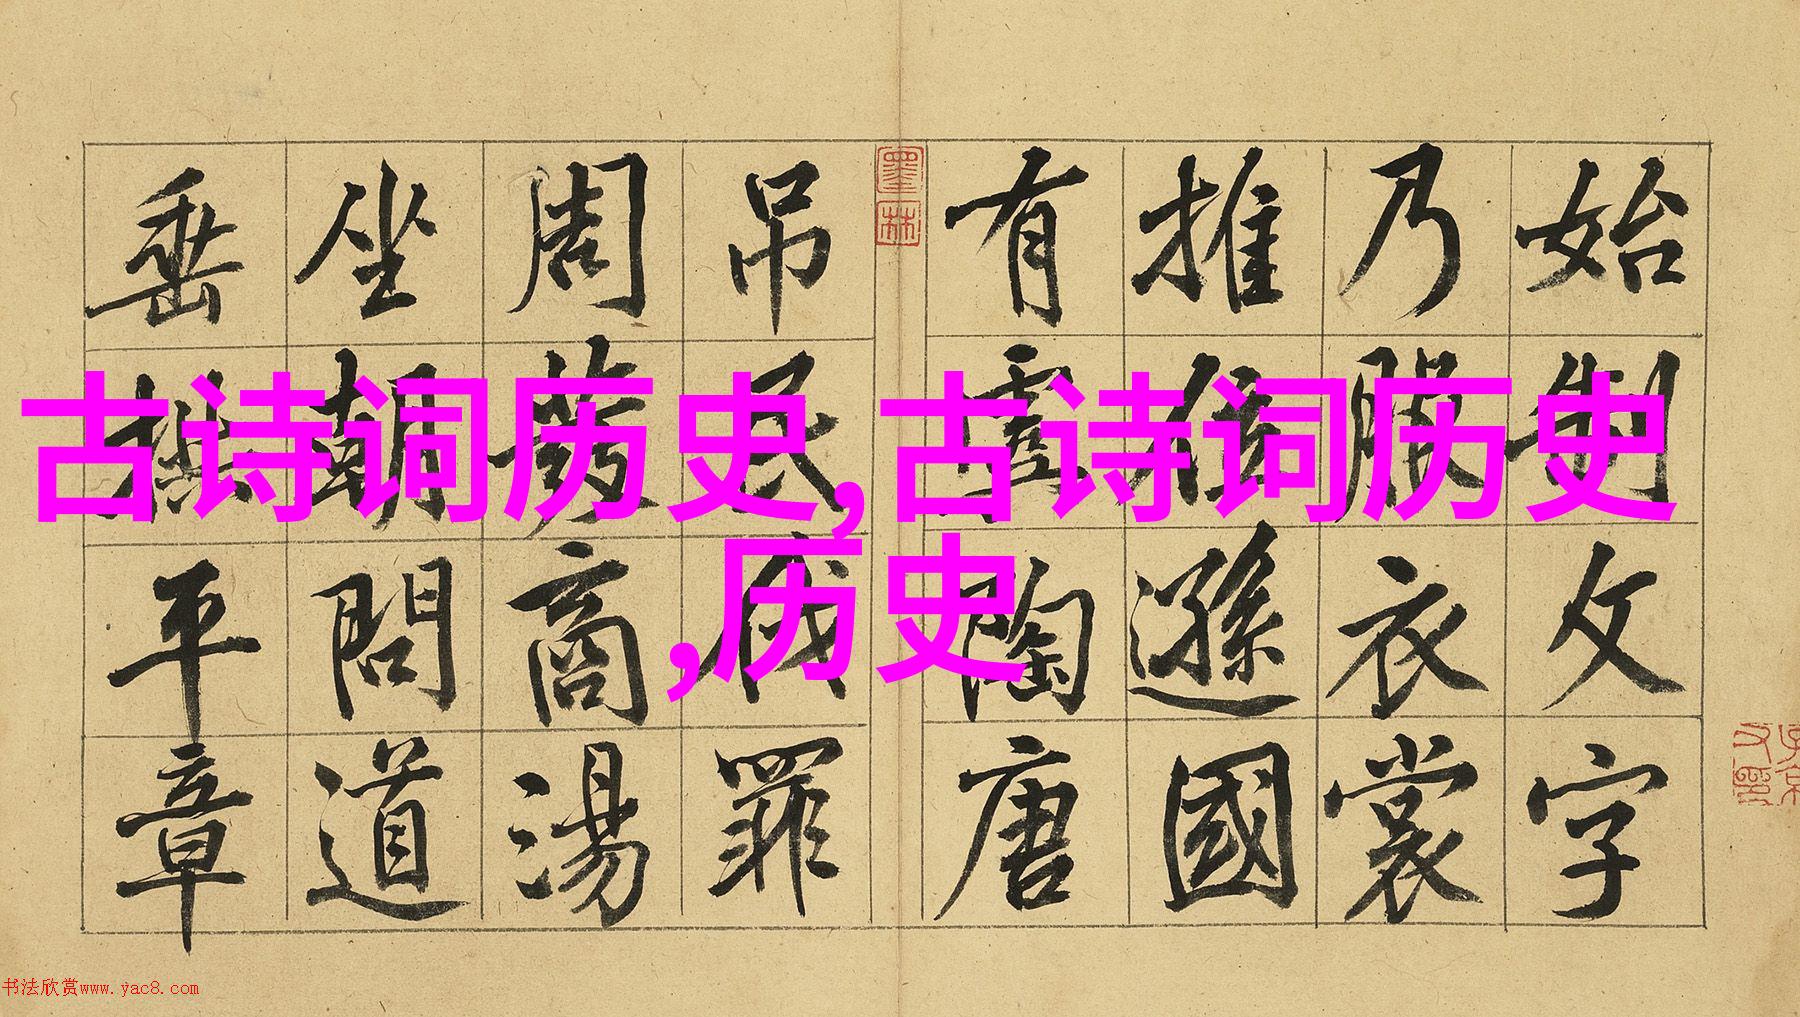 始制文字
乃服衣裳
推位遜國
有虞陶唐
墨林
吊民伐罪
周發商湯
坐朝問道
垂拱平章
古诗词历史,古诗词历史
,历史
书法欣赏www.yac8.com